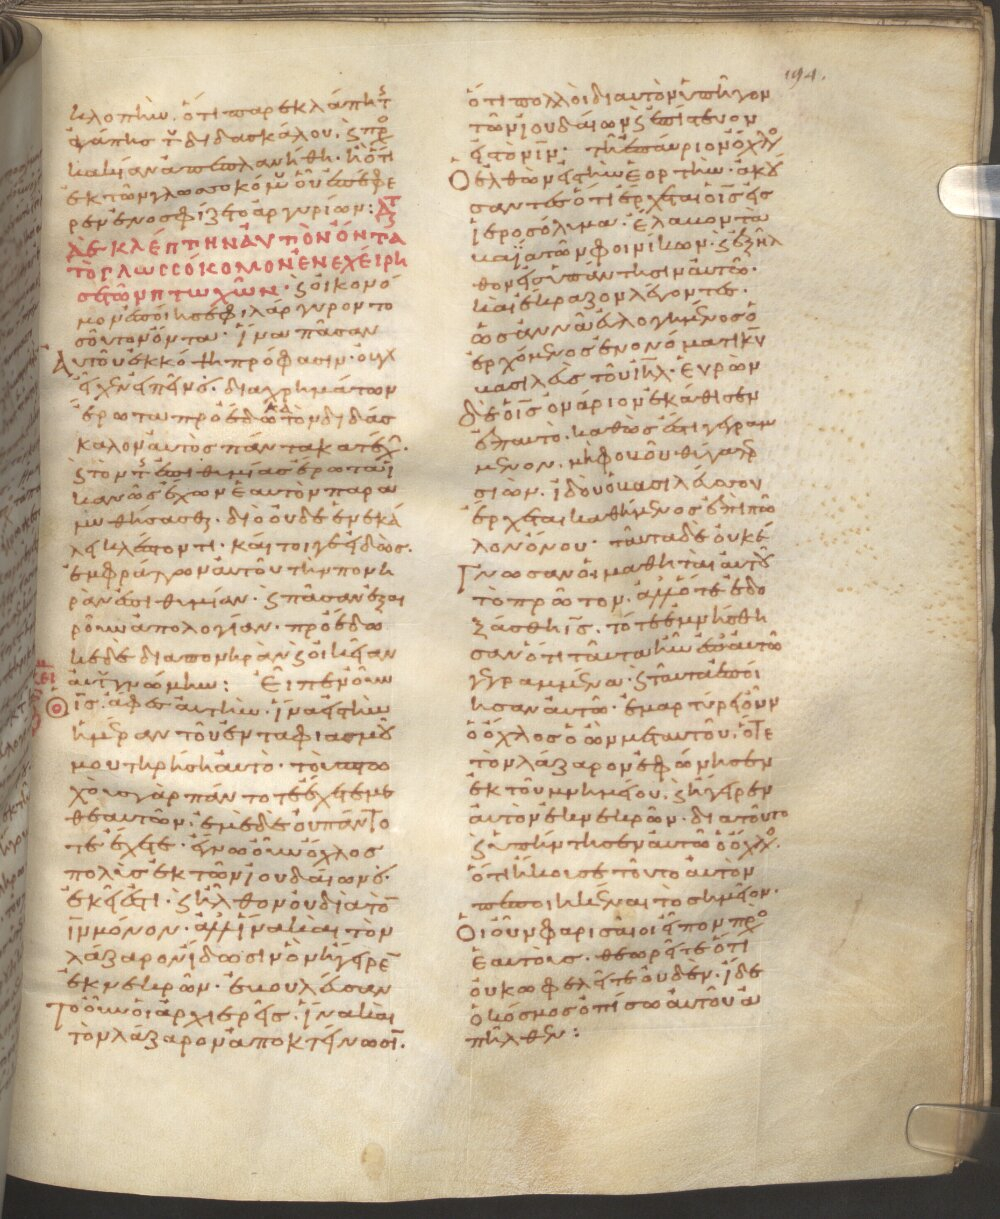 194.
κλοπὴν. ὅτι παρεκλάπη τ
ἀγάπης τοῦ διδασκάλου. ϛ πρ
καὶ μὴ ἀνάπεπλανήθη. ἢ ὅτι
ἐκ τῶν γλωσσοκόμου ὧν ἐπεφε
ρεν ἐνοσφίζετο ἀργυρίων:
ΔΕ ΚΛΕΠΤΗΝ ΑΥΤΟΝ ΟΝΤΑ
ΤΟ ΓΛΩΣΣΟΚΟΜΟΝ ΕΝΕΧΕΙΡΗ
σε τῶν πτωχῶν. ϛ οἰκονό
μον ἐποίησε φιλάργυρον το
σοῦτον ὄντα. ἵνα πᾶσαν
Αὐτοῦ ἐκκόψη πρόφασιν. οὐχ
ἔχειν εἰπεῖν. διαχρημάτων
ἔρωτα προέδωκα τὸν διδάσ
καλον αὐτὸς πάντα κατέχων.
ϛ τὸν τῆς ἐπιθυμίας ἔρωτα ἱ
κανῶς ἔχων ἑαυτὸν παρα
μυθήσασθαι. διὸ οὐδὲ ἐνεκά
λει κλέπτοντι. καίτοιγε εἰδὼς.
ἐμφράττων αὐτοῦ τὴν πονη
ρὰν ἐπιθυμίαν. ϛ πᾶσαν ἐξαι
ρῶν ἀπολογίαν. προέδω
κε δὲ διαπονηρὰν ϛ οἰκείαν
αὐτοῦ γνώμην: Εἶπεν οὖν
ὁ ις. ἄφες αὐτὴν. ἵνα εἰς τὴν
ἡμέραν τοῦ ἐνταφιασμοῦ
μου τηρήση αὐτό. τοὺς πτω
χοὺς γὰρ πάντοτε ἔχετε με
θ ἑαυτῶν. ἐμὲ δὲ οὐ πάντο
τε ἔχετε. ἔγνω οὖν ὄχλος
πολὺς ἐκ τῶν ἰουδαίων ὅτι
ἐκεῖ ἐστι. ϛ ἦλθον οὐ διὰ τὸν
ιν μόνον. ἀλλ ἵνα καὶ τὸν
λάζαρον ἴδωσιν ὃν ἤγειρεν
ἐκ νεκρῶν. ἐβουλεύσαν
Το οὖν οἱ ἀρχιερεῖς. ἵνα καὶ
τὸν λάζαρον ἀποκτείνωσι.
ὅτι πολλοὶ δι αὐτὸν ὑπῆγον
τῶν ἰουδαίων ϛ ἐπίστευον
εἰς τὸν ιν. τῆ ἐπαύριον ὄχλος
Ὁ ἐλθὼν εἰς τὴν ἑορτὴν. ἀκού
σαντες ὅτι ἔρχεται ὁ ις εἰς
ἱεροσόλυμα. ἔλαβον τὰ
βαΐα τῶν φοινίκων. ϛ ἐξῆλ
θον εἰς ὑπάντησιν αὐτῶ.
καὶ ἔκραζον λέγοντες.
ὡσαννὰ εὐλογημένος ὁ
ἐρχόμενος ἐν ὀνόματι κυ
βασιλεὺς τοῦ ιηλ. Εὑρὼν
δὲ ὁ ις ὀνάριον ἐκάθισεν
ἐπ αυτὸ. καθώς ἐστι γεγραμ
μένον. μὴ φοβοῦ θύγατερ
σιών. ἰδοὺ ὁ βασιλεύς σου
ἔρχεται καθήμενος ἐπὶ πῶ
λον ὄνου. ταῦτα δὲ οὐκ ἔ
Γνωσαν οἱ μαθηταὶ αὐτοῦ
τὸ πρῶτον. ἀλλ ὅτε ἐδο
ξάσθη ις. τότε ἐμνήσθη
σαν ὅτι ταῦτα ἦν ἐπ αὐτῶ
γεγραμμένα. ϛ ταῦτα ἐποί
ησαν αὐτῶ. ἐμαρτύρει οὖν
ὁ ὄχλος ὁ ὢν μετ αὐτοῦ. ὅτε
τὸν λάζαρον ἐφώνησεν
ἐκ τοῦ μνημείου. ϛ ἤγειρεν
αὐτὸν ἐκ νεκρῶν. διατοῦτο
ϛ ὑπήντησεν αὐτῶ ὁ ὄχλος.
ὅτι ἤκουσε τοῦτο αὐτὸν
πεποιηκέναι τὸ σημεῖον.
Οἱ οὖν φαρισαῖοι εἶπον πρὸς
ἑαυτοὺς. θεωρεῖτε ὅτι
οὐκ ὠφελεῖτε οὐδέν. ἴδε
ὁ κόσμος ὀπίσω αὐτοῦ ἀ
πῆλθεν: